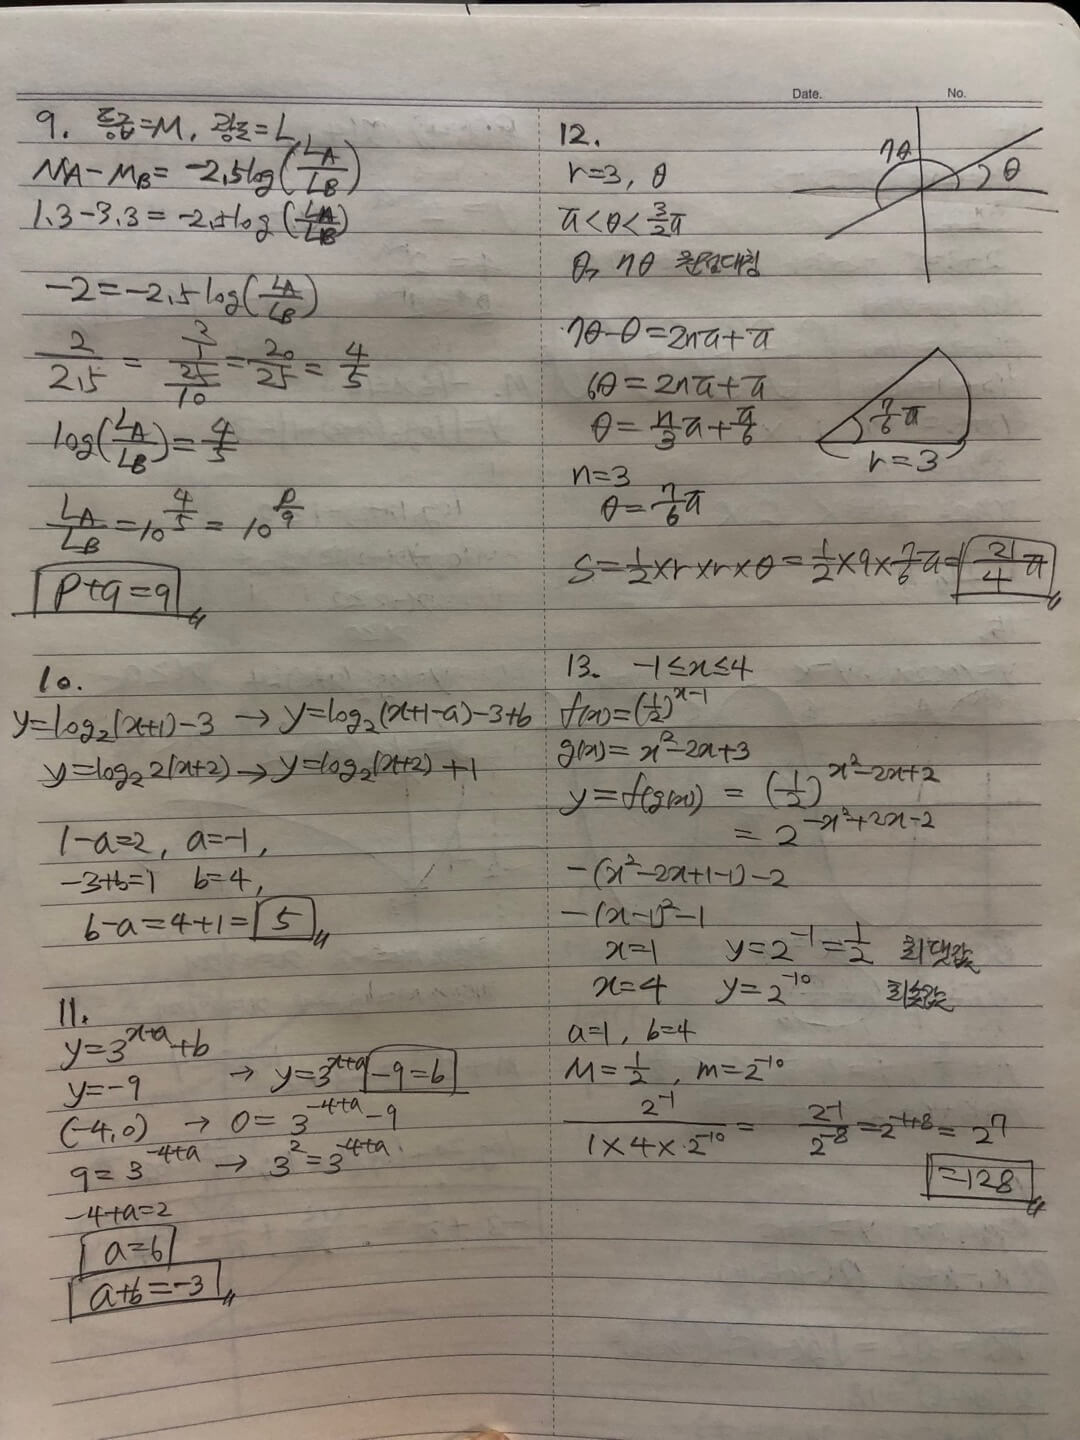 Date. No.
9. 등급=M, 광도=L
MA-MB=-2.5log(LA/LB)
1.3-3.3=-2.5log(LA/LB)
-2=-2.5log(LA/LB)
2/2.5 = (2/1)/(25/10) = 20/25 = 4/5
log(LA/LB)=4/5
LA/LB=10^(4/5)=10^(p/q)
p+q=9
10.
y=log₂(x+1)-3 → y=log₂(x+1-a)-3+b
y=log₂2(x+2) → y=log₂(x+2)+1
1-a=2, a=-1,
-3+b=1 b=4,
b-a=4+1=5
11.
y=3^(x+a)+b
y=-9 → y=3^(x+a)-9=b
(-4,0) → 0=3^(-4+a)-9
9=3^(-4+a) → 3²=3^(-4+a)
-4+a=2
a=6
a+b=-3
12.
r=3, θ
π<θ<3/2π
θ, 7θ 원점대칭
7θ
θ
7θ-θ=2nπ+π
6θ=2nπ+π
θ=n/3π+π/6
n=3
θ=7/6π
7/6π
r=3
S=1/2×r×r×θ=1/2×9×7/6π=21/4π
13. -1≤x≤4
f(x)=(1/2)^(x-1)
g(x)=x²-2x+3
y=f(g(x))=(1/2)^(x²-2x+2)
=2^(-x²+2x-2)
-(x²-2x+1-1)-2
-(x-1)²-1
x=1 y=2^(-1)=1/2 최댓값
x=4 y=2^(-10) 최솟값
a=1, b=4
M=1/2, m=2^(-10)
2^(-1)/(1×4×2^(-10))= 2^(-1)/2^(-8)=2^(-1+8)=2^7
=128